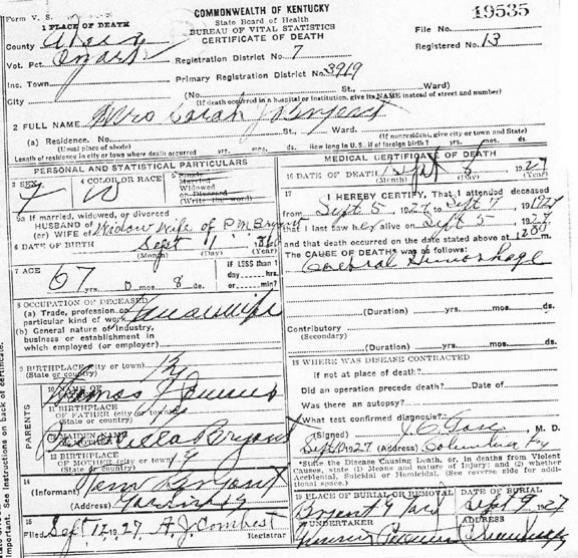 Form V. S.
COMMONWEALTH OF KENTUCKY
State Board of Health
BUREAU OF VITAL STATISTICS
CERTIFICATE OF DEATH
19535
File No.
Registered No. 13
1 PLACE OF DEATH
County
Vot. Pct.
Registration District No. 7
Inc. Town
Primary Registration District No. 3919
City
(No. St., Ward)
(If death occurred in a hospital or institution, give its NAME instead of street and number)
2 FULL NAME Mrs Sarah J Bryant
(a) Residence. No. St., Ward.
(Usual place of abode) (If nonresident, give city or town and State)
Length of residence in city or town where death occurred yrs. mos. ds. How long in U. S., if of foreign birth? yrs. mos. ds.
PERSONAL AND STATISTICAL PARTICULARS
3 SEX F
4 COLOR OR RACE W
5 Single
Married
Widowed
or Divorced
(Write the word)
5a If married, widowed, or divorced
HUSBAND OF
(or) WIFE OF Widow Wife of P. M. Bryant
6 DATE OF BIRTH Sept 1 1860
(Month) (Day) (Year)
7 AGE 67 yrs. 0 mos. 8 ds.
IF LESS than 1 day hrs. or min?
8 OCCUPATION OF DECEASED
(a) Trade, profession or particular kind of work
(b) General nature of industry, business or establishment in which employed (or employer)
9 BIRTHPLACE (city or town) Ky
(State or country)
PARENTS
10 NAME OF Thomas J
11 BIRTHPLACE
OF FATHER (city or town) Ky
(State or country)
MAIDEN NAME Bryant
13 BIRTHPLACE
OF MOTHER (city or town) Ky
(State or country)
14
(Informant) Bryant
(Address)
15
Filed Sept 12 1927 A. J. Combest
Registrar
MEDICAL CERTIFICATE OF DEATH
16 DATE OF DEATH Sept 8 1927
(Month) (Day) (Year)
17
I HEREBY CERTIFY, That I attended deceased
from Sept 5 1927 to Sept 7 1927
that I last saw her alive on Sept 5 1927
and that death occurred on the date stated above at m.
The CAUSE OF DEATH* was as follows:
Cerebral Hemorrhage
(Duration) yrs. mos. ds.
Contributory
(Secondary)
(Duration) yrs. mos. ds.
18 WHERE WAS DISEASE CONTRACTED
If not at place of death?
Did an operation precede death? Date of
Was there an autopsy?
What test confirmed diagnosis?
(Signed) M. D.
1927 (Address) Columbia Ky
*State the Disease Causing Death, or, in deaths from Violent Causes, state (1) Means and nature of Injury; and (2) whether Accidental, Suicidal or Homicidal. (See reverse side for additional space.)
19 PLACE OF BURIAL OR REMOVAL DATE OF BURIAL
Bryant Sept 9 1927
UNDERTAKER ADDRESS
See instructions on back of certificate.